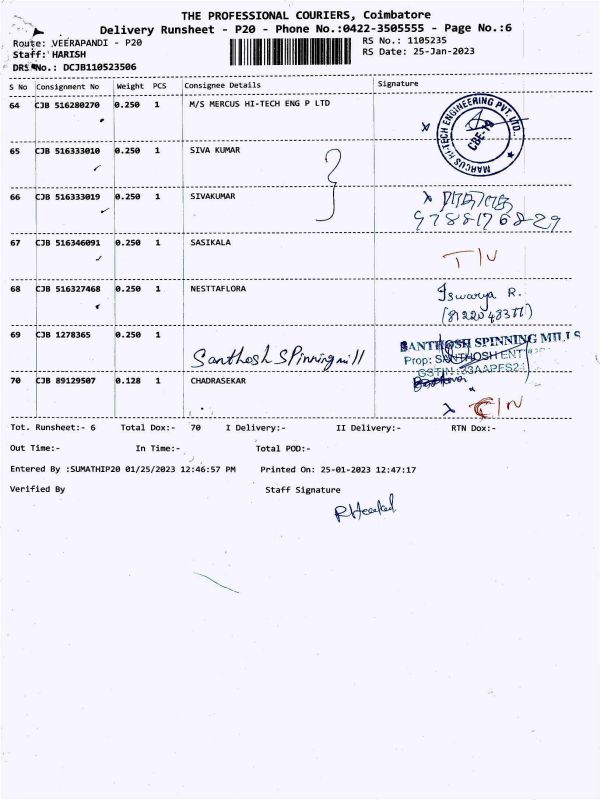 THE PROFESSIONAL COURIERS, Coimbatore
Delivery Runsheet - P20 - Phone No.:0422-3505555 - Page No.:6
Route: VEERAPANDI - P20
RS No.: 1105235
Staff: HARISH
RS Date: 25-Jan-2023
DRS No.: DCJB110523506
S No Consignment No Weight PCS Consignee Details Signature
64 CJB 516280270 0.250 1 M/S MERCUS HI-TECH ENG P LTD
MARCUS HI-TECH ENGINEERING PVT. LTD.
CBE-19
65 CJB 516333010 0.250 1 SIVA KUMAR
66 CJB 516333019 0.250 1 SIVAKUMAR
9788176829
67 CJB 516346091 0.250 1 SASIKALA
68 CJB 516327468 0.250 1 NESTTAFLORA Iswarya R.
(8122048377)
69 CJB 1278365 0.250 1
Santhosh SPinning mill
SANTHOSH SPINNING MILLS
Prop: SANTHOSH ENT
GSTIN :33AAPFS2
70 CJB 89129507 0.128 1 CHADRASEKAR
Tot. Runsheet:- 6 Total Dox:- 70 I Delivery:- II Delivery:- RTN Dox:-
Out Time:- In Time:- Total POD:-
Entered By :SUMATHIP20 01/25/2023 12:46:57 PM Printed On: 25-01-2023 12:47:17
Verified By Staff Signature